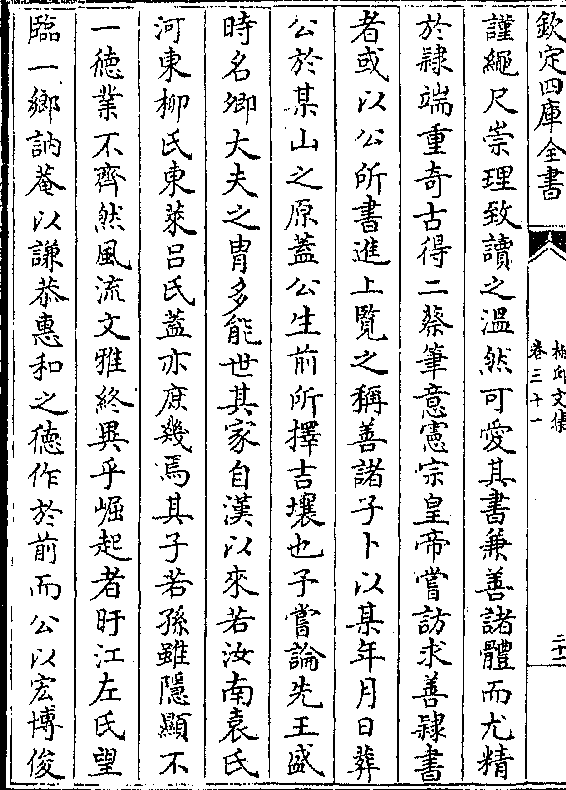 欽定四庫全書
栢邱文集
卷三十一
二十二
謹繩尺崇理致讀之溫然可愛其書兼善諸體而尤精
於隸端重奇古得二蔡筆意憲宗皇帝嘗訪求善隸書
者或以公所書進上覽之稱善諸子卜以某年月日葬
公於某山之原蓋公生前所擇吉壤也予嘗論先王盛
時名卿大夫之胄多能世其家自漢以來若汝南袁氏
河東柳氏東萊呂氏蓋亦庶幾焉其子若孫雖隱顯不
一徳業不齊然風流文雅終異乎崛起者盱江左氏望
臨一鄉訥菴以謙恭惠和之徳作於前而公以宏博俊